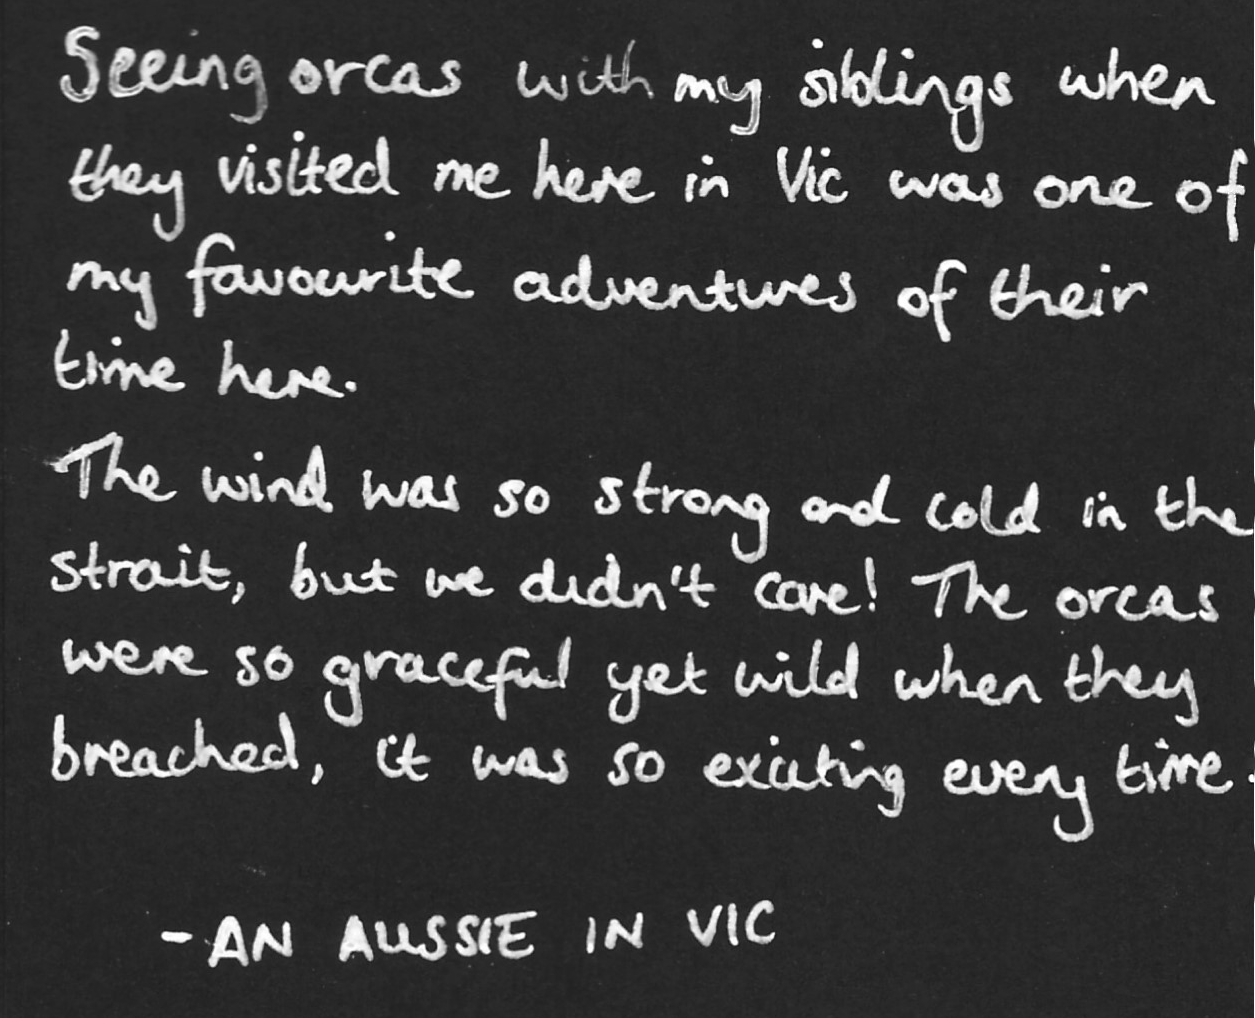 Seeing orcas with my siblings when
they visited me here in Vic was one of
my favourite adventures of their
time here.
The wind was so strong and cold in the
strait, but we didn't care! The orcas
were so graceful yet wild when they
breached, it was so exciting every time.
- AN AUSSIE IN VIC